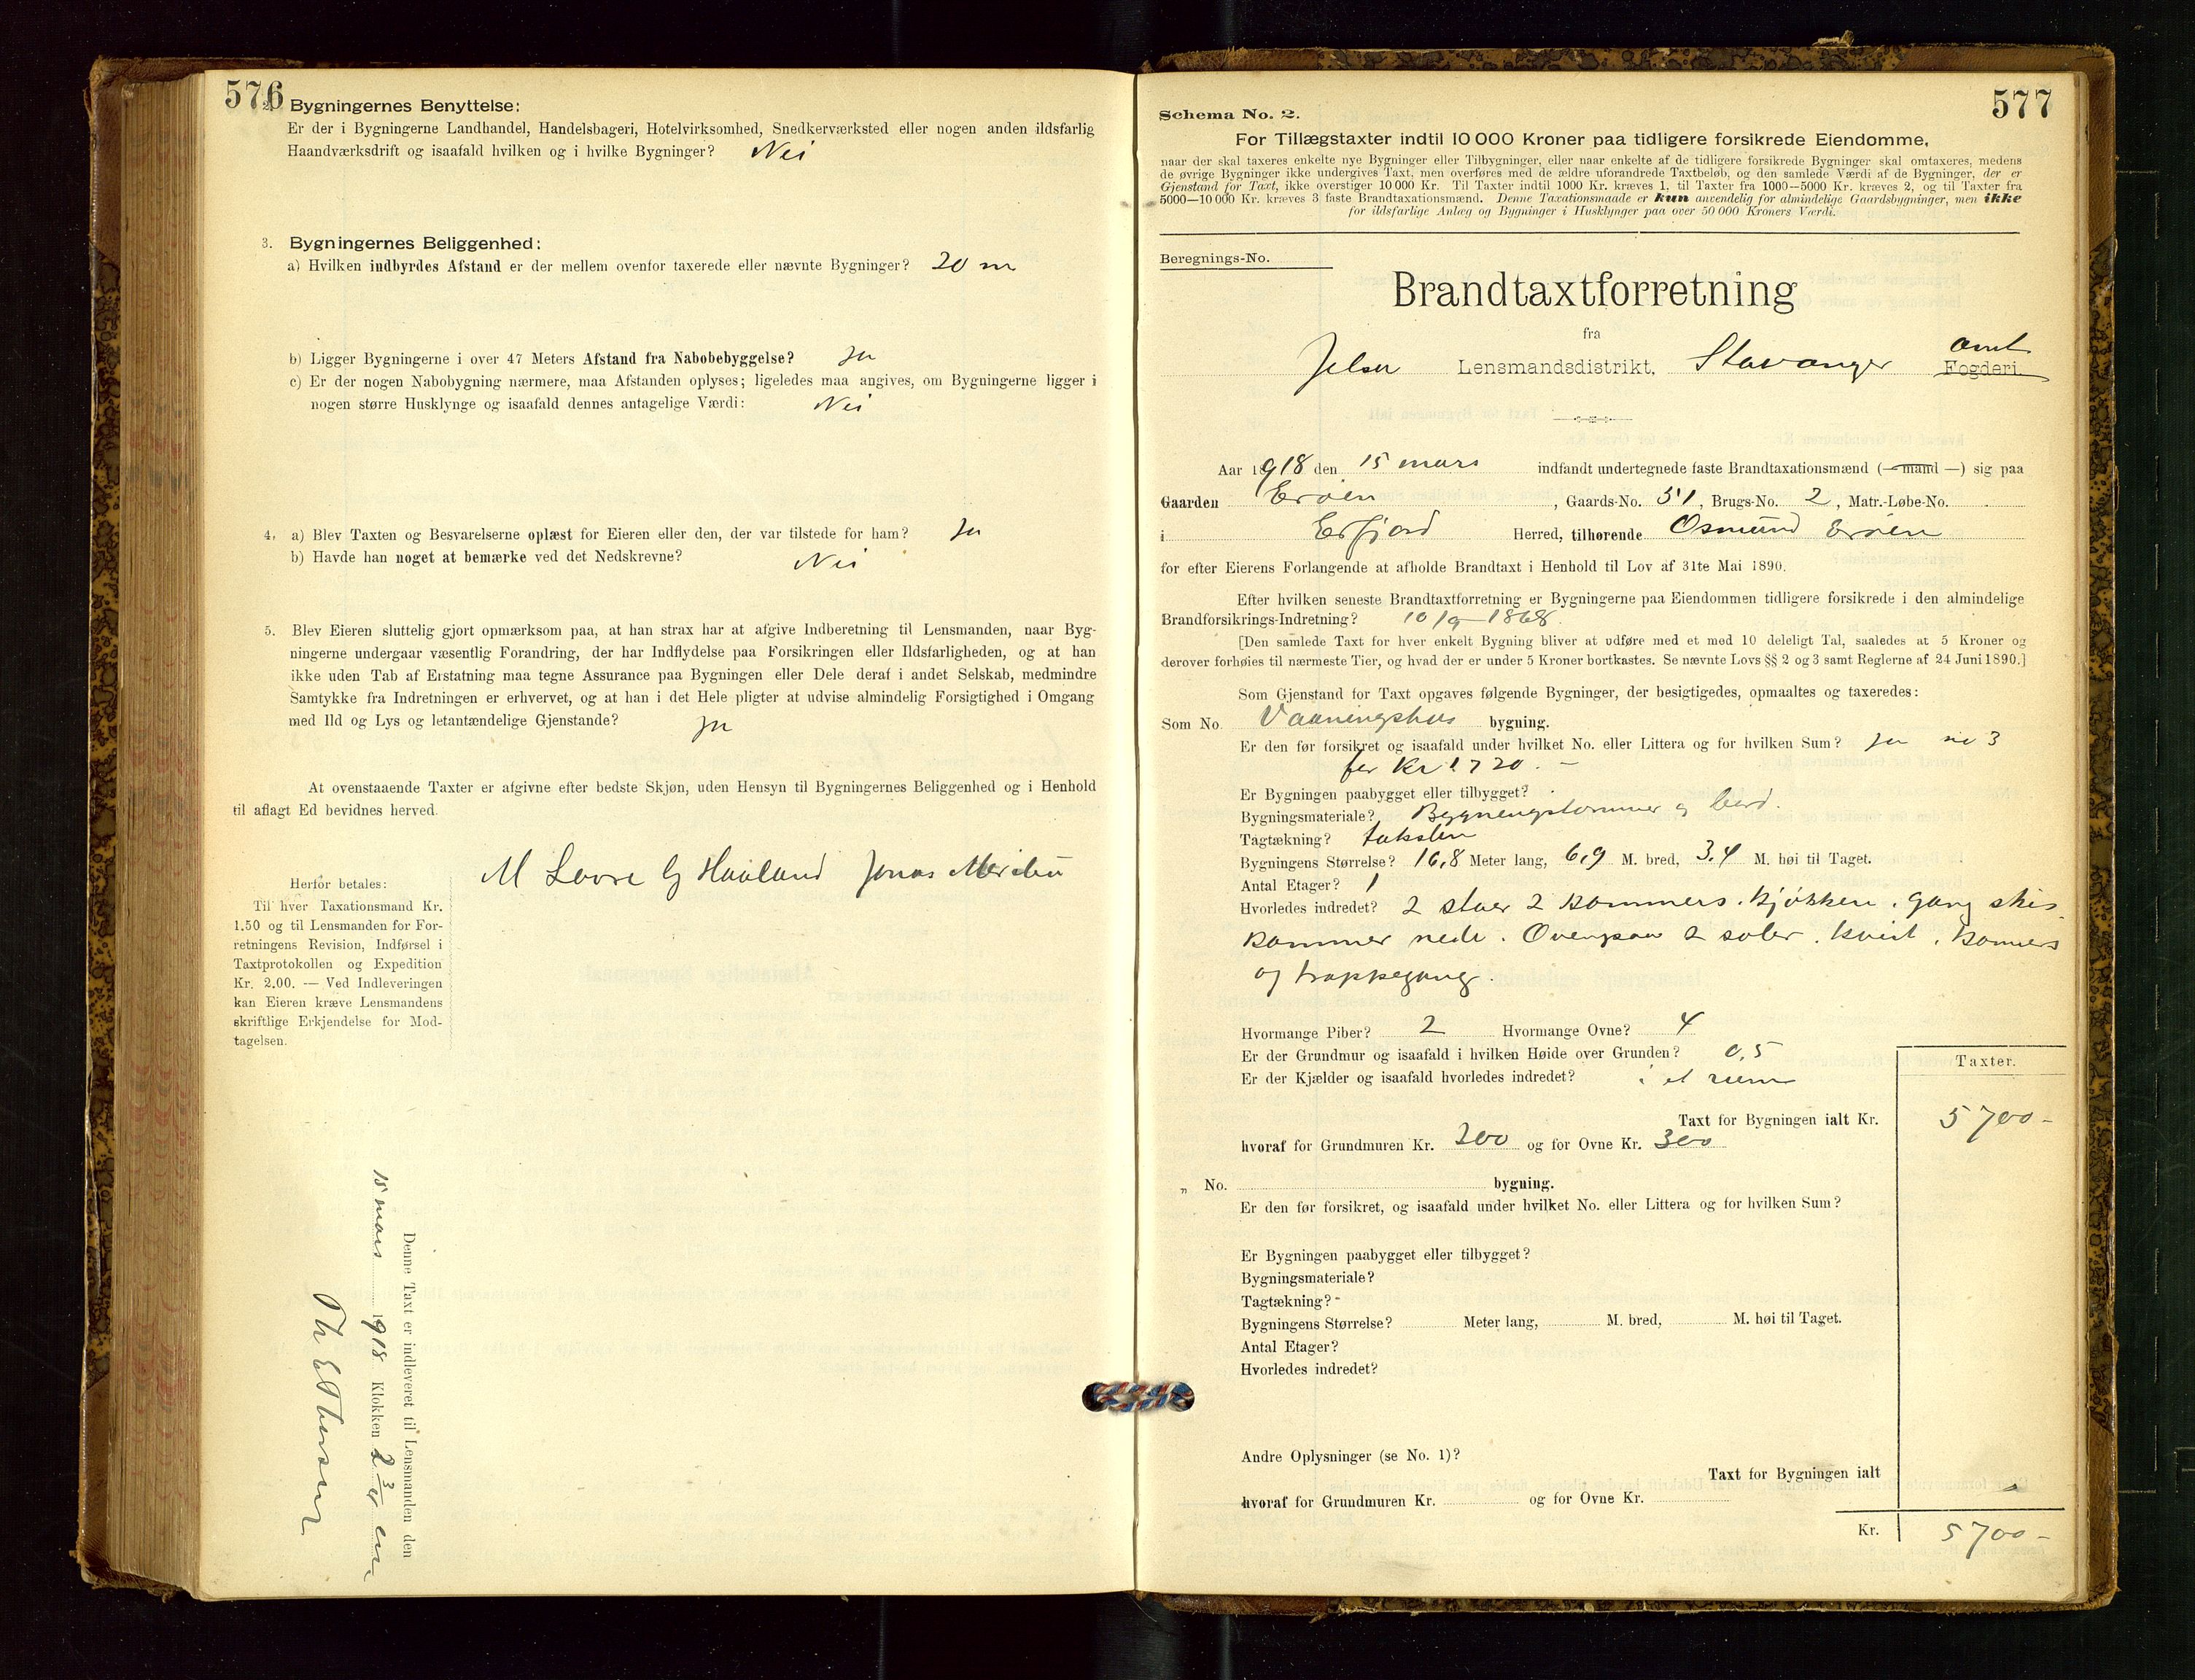 576
Bygningernes Benyttelse:
Er der i Bygningerne Landhandel, Handelsbageri, Hotelvirksomhed, Snedkerværksted eller nogen anden ildsfarlig
Haandværksdrift og isaafald hvilken og i hvilke Bygninger? Nei
3. Bygningernes Beliggenhed:
a) Hvilken indbyrdes Afstand er der mellem ovenfor taxerede eller nævnte Bygninger? 20 m
b) Ligger Bygningerne i over 47 Meters Afstand fra Nabobebyggelse? Ja
c) Er der nogen Nabobygning nærmere, maa Afstanden oplyses; ligeledes maa angives, om Bygningerne ligger i
nogen større Husklynge og isaafald dennes antagelige Værdi: Nei
4. a) Blev Taxten og Besvarelserne oplæst for Eieren eller den, der var tilstede for ham? Ja
b) Havde han noget at bemærke ved det Nedskrevne? Nei
5. Blev Eieren sluttelig gjort opmærksom paa, at han strax har at afgive Indberetning til Lensmanden, naar Byg-
ningerne undergaar væsentlig Forandring, der har Indflydelse paa Forsikringen eller Ildsfarligheden, og at han
ikke uden Tab af Erstatning maa tegne Assurance paa Bygningen eller Dele deraf i andet Selskab, medmindre
Samtykke fra Indretningen er erhvervet, og at han i det Hele pligter at udvise almindelig Forsigtighed i Omgang
med Ild og Lys og letantændelige Gjenstande? Ja
At ovenstaaende Taxter er afgivne efter bedste Skjøn, uden Hensyn til Bygningernes Beliggenhed og i Henhold
til aflagt Ed bevidnes herved.
M Lovre G Haaland Jonas
Herfor betales:
Til hver Taxationsmand Kr.
1.50 og til Lensmanden for For-
retningens Revision, Indførsel i
Taxtprotokollen og Expedition
Kr. 2.00. — Ved Indleveringen
kan Eieren kræve Lensmandens
skriftlige Erkjendelse for Mod-
tagelsen.
Denne Taxt er indleveret til Lensmanden den
15 mars 1918 Klokken 2
577
Schema No. 2.
For Tillægstaxter indtil 10 000 Kroner paa tidligere forsikrede Eiendomme,
naar der skal taxeres enkelte nye Bygninger eller Tilbygninger, eller naar enkelte af de tidligere forsikrede Bygninger skal omtaxeres, medens
de øvrige Bygninger ikke undergives Taxt, men overføres med de ældre uforandrede Taxtbeløb, og den samlede Værdi af de Bygninger, der er
Gjenstand for Taxt, ikke overstiger 10 000 Kr. Til Taxter indtil 1000 Kr. kræves 1, til Taxter fra 1000—5000 Kr. kræves 2, og til Taxter fra
5000—10 000 Kr. kræves 3 faste Brandtaxationsmænd. Denne Taxationsmaade er kun anvendelig for almindelige Gaardsbygninger, men ikke
for ildsfarlige Anlæg og Bygninger i Husklynger paa over 50 000 Kroners Værdi.
Beregnings-No.
Brandtaxtforretning
fra
Jelsa Lensmandsdistrikt, Stavanger amt Fogderi
Aar 1918 den 15 mars indfandt undertegnede faste Brandtaxationsmænd (— mand —) sig paa
Gaarden Erøen, Gaards-No. 51, Brugs-No. 2, Matr.-Løbe-No.
i Erfjord Herred, tilhørende Osmund Erøen
for efter Eierens Forlangende at afholde Brandtaxt i Henhold til Lov af 31te Mai 1890.
Efter hvilken seneste Brandtaxtforretning er Bygningerne paa Eiendommen tidligere forsikrede i den almindelige
Brandforsikrings-Indretning? 10/9 - 1868.
[Den samlede Taxt for hver enkelt Bygning bliver at udføre med et med 10 deleligt Tal, saaledes at 5 Kroner og
derover forhøies til nærmeste Tier, og hvad der er under 5 Kroner bortkastes. Se nævnte Lovs §§ 2 og 3 samt Reglerne af 24 Juni 1890.]
Som Gjenstand for Taxt opgaves følgende Bygninger, der besigtigedes, opmaaltes og taxeredes:
Som No. Vaaningshus bygning.
Er den før forsikret og isaafald under hvilket No. eller Littera og for hvilken Sum? Ja no 3
for Kr 1720.-
Er Bygningen paabygget eller tilbygget?
Bygningsmateriale? Bygningstømmer og bord.
Tagtækning? taksten
Bygningens Størrelse? 16,8 Meter lang, 6,9 M. bred, 3,4 M. høi til Taget.
Antal Etager? 1
Hvorledes indredet? 2 stuer 2 Kammers. Kjøkken. gang
Kammer nede. Ovenpaa 2 saler. kvist. Kammers
og trappegang.
Hvormange Piber? 2 Hvormange Ovne? 4
Er der Grundmur og isaafald i hvilken Høide over Grunden? 0,5
Er der Kjælder og isaafald hvorledes indredet? i et rum
Taxter.
Taxt for Bygningen ialt Kr. 5700-
hvoraf for Grundmuren Kr. 200 og for Ovne Kr. 300
„ No. bygning.
Er den før forsikret, og isaafald under hvilket No. eller Littera og for hvilken Sum?
Er Bygningen paabygget eller tilbygget?
Bygningsmateriale?
Tagtækning?
Bygningens Størrelse? Meter lang, M. bred, M. høi til Taget.
Antal Etager?
Hvorledes indredet?
Andre Oplysninger (se No. 1)?
Taxt for Bygningen ialt
hvoraf for Grundmuren Kr. og for Ovne Kr.
Kr. 5700-